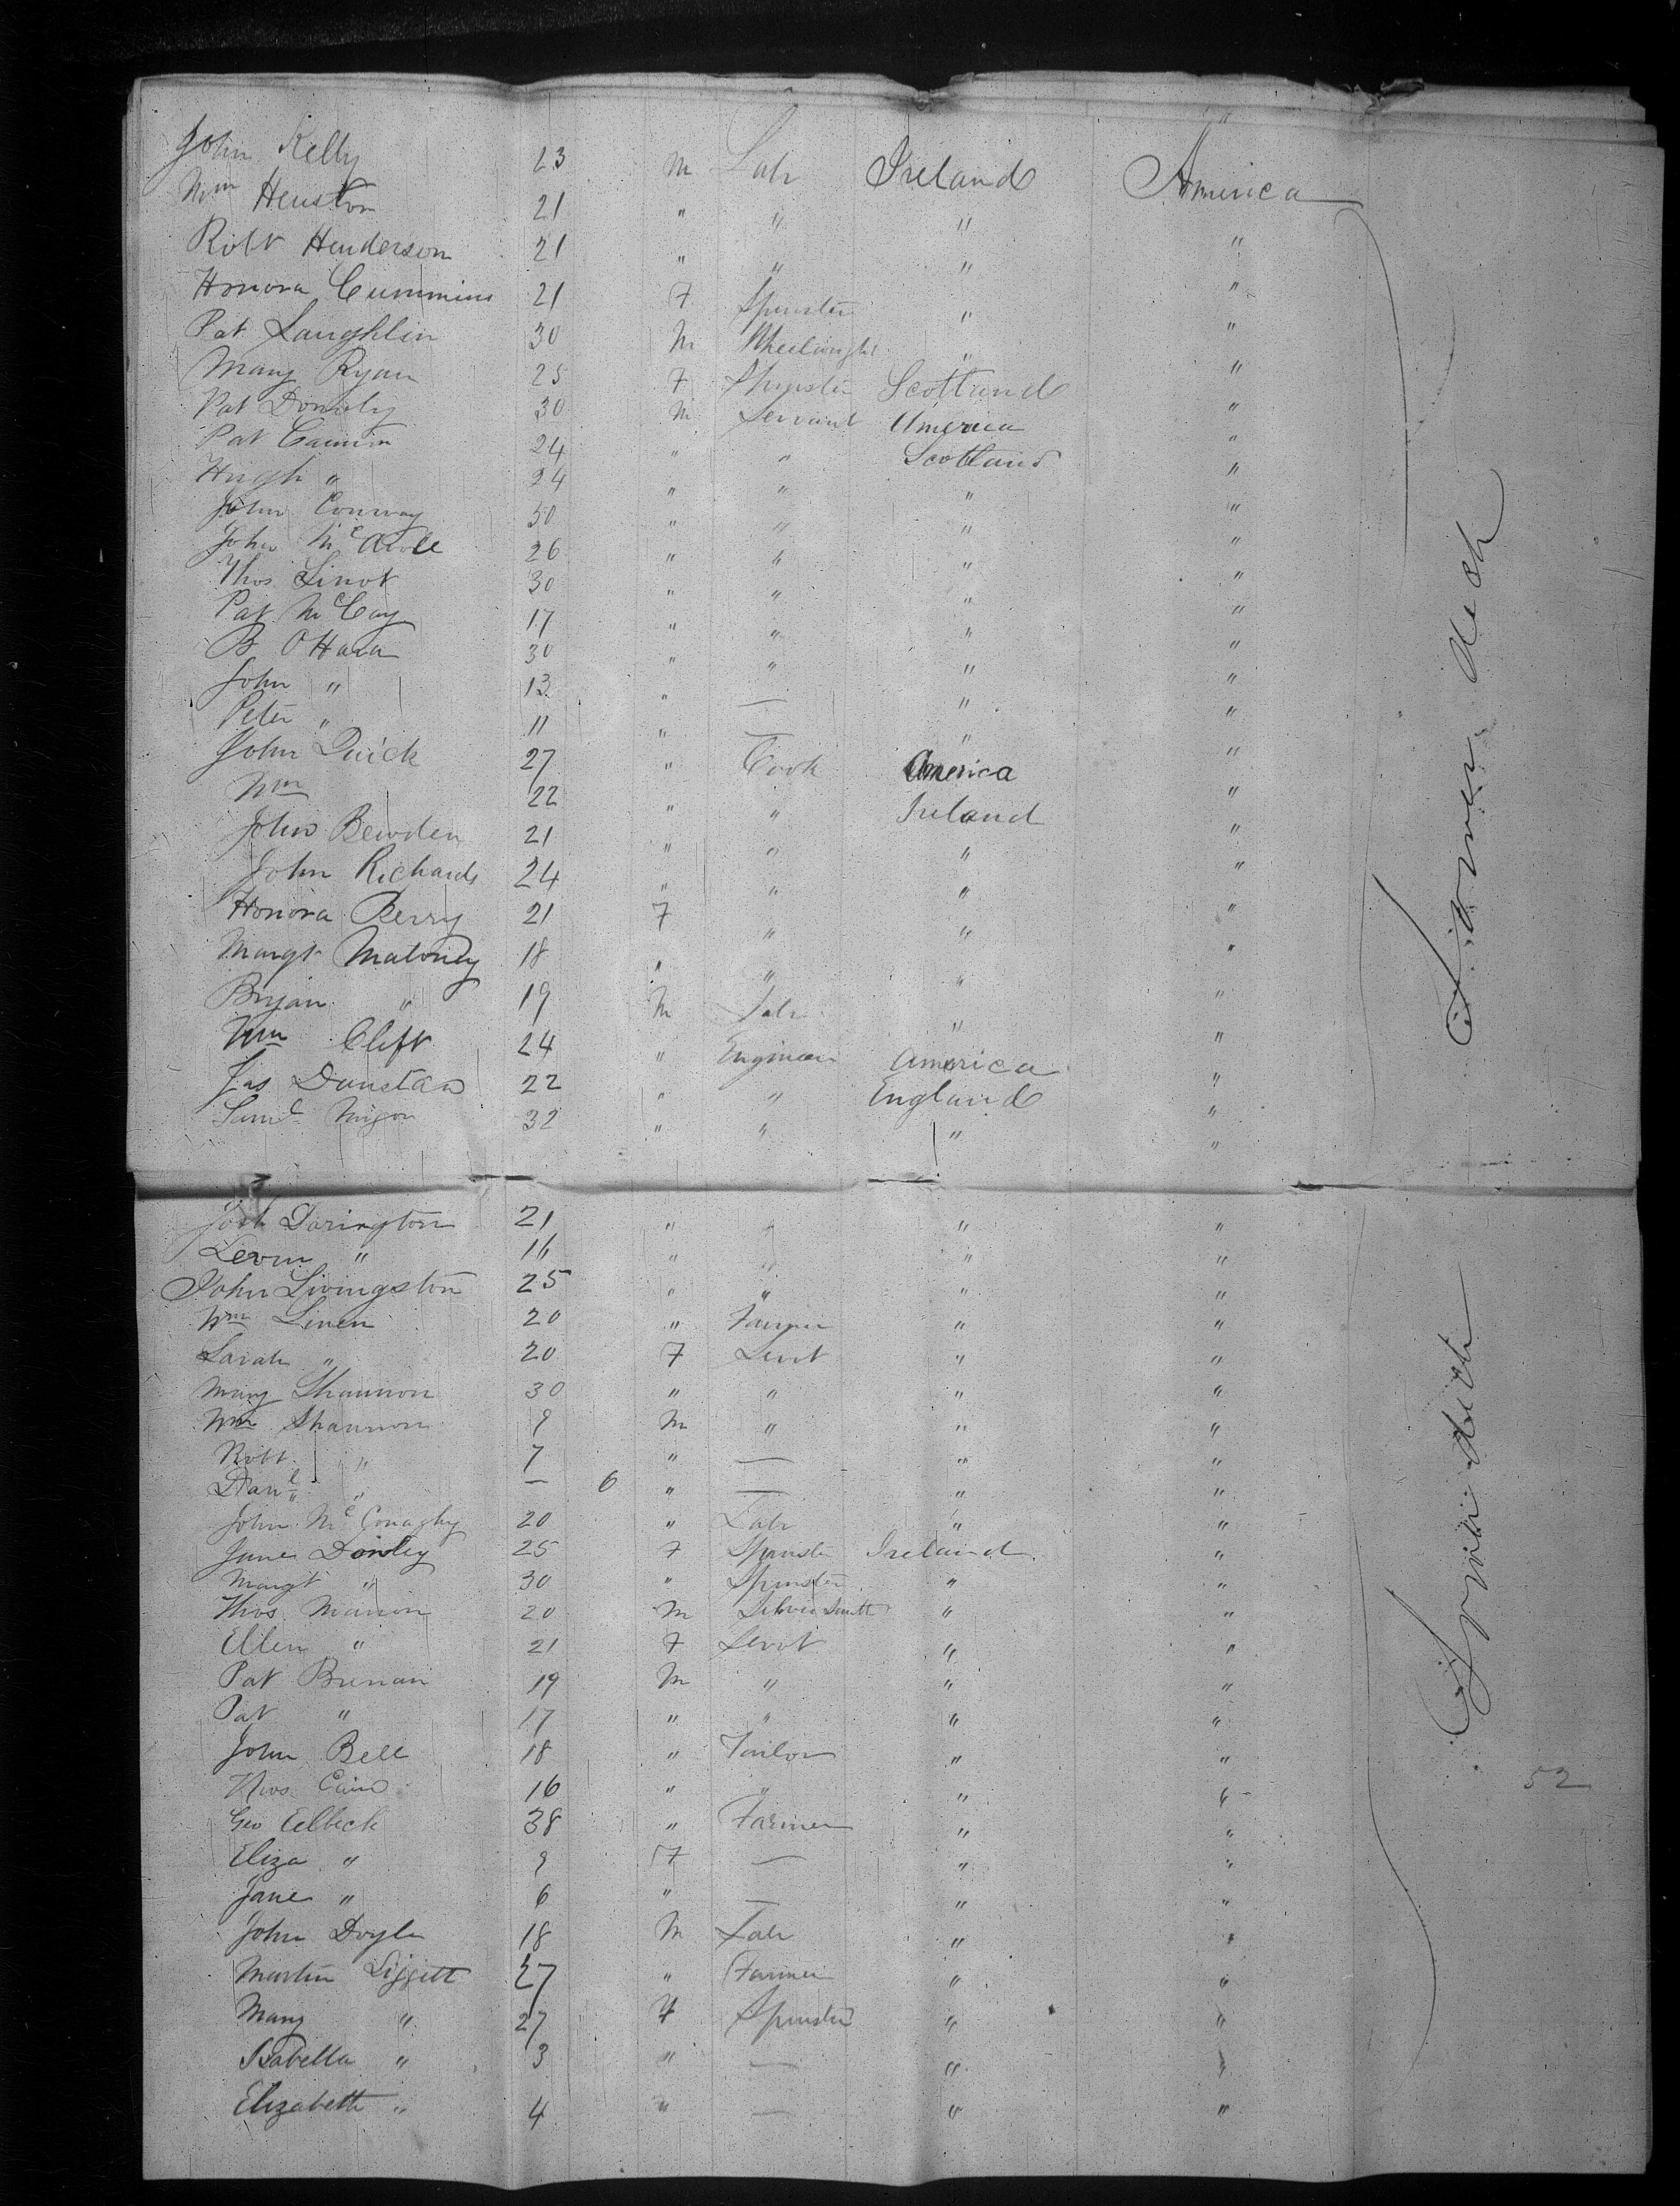 "
John Kelly 23 M Labr Ireland America
Wm Heuston 21 " " " "
Robt Henderson 21 " " " "
Honora Cummins 21 F Spinster " "
Pat Laughlin 30 M Wheelwright " "
Mary Ryan 25 F Spinster Scotland "
Pat Donnely 30 M Servant America "
Pat Cannon 24 " " Scotland "
Hugh " 24 " " " "
John Conway 50 " " " "
John McArdle 26 " " " "
Thos Sinot 30 " " " "
Pat McCoy 17 " " " "
B OHara 30 " " " "
John " 13 " — " "
Peter " 11 " — " "
John Quick 27 " Cook America "
Wm 22 " " Ireland "
John Bewden 21 " " " "
John Richards 24 " " " "
Honora Berry 21 F " " "
Margt Maloney 18 " " " "
Bryan " 19 M Labr " "
Wm Clift 24 " Engineer America "
Jas Dunstan 22 " " England "
Saml 32 " " " "
Josh Dorington 21 " " " "
" 16 " " " "
John Livingston 25 " " " "
Wm Linen 20 " Farmer " "
Sarah " 20 F Servt " "
Mary Shannon 30 " " " "
Wm Shannon 9 M " " "
Robt " 7 " — " "
Danl " — 6 " — " "
John McConaghy 20 " Labr " "
Jane Donley 25 F Spinster Ireland "
Margt " 30 " Spinster " "
Thos Manion 20 M Silver Smith " "
Ellen " 21 F Servt " "
Pat Brenan 19 M " " "
Pat " 17 " " " "
John Bell 18 " Tailor " "
Thos Cain 16 " " " "
Geo Elbeck 38 " Farmer " "
Eliza " 9 F — " "
Jane " 6 " — " "
John Doyle 18 M Labr " "
Martin Liggett 27 " Farmer " "
Mary " 27 F Spinster " "
Isabella " 3 " — " "
Elizabeth " 4 " — " "
deck
deck
52